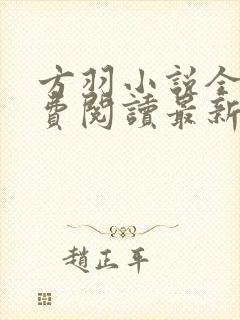 方羽小說全
費閱讀最新
趙正平